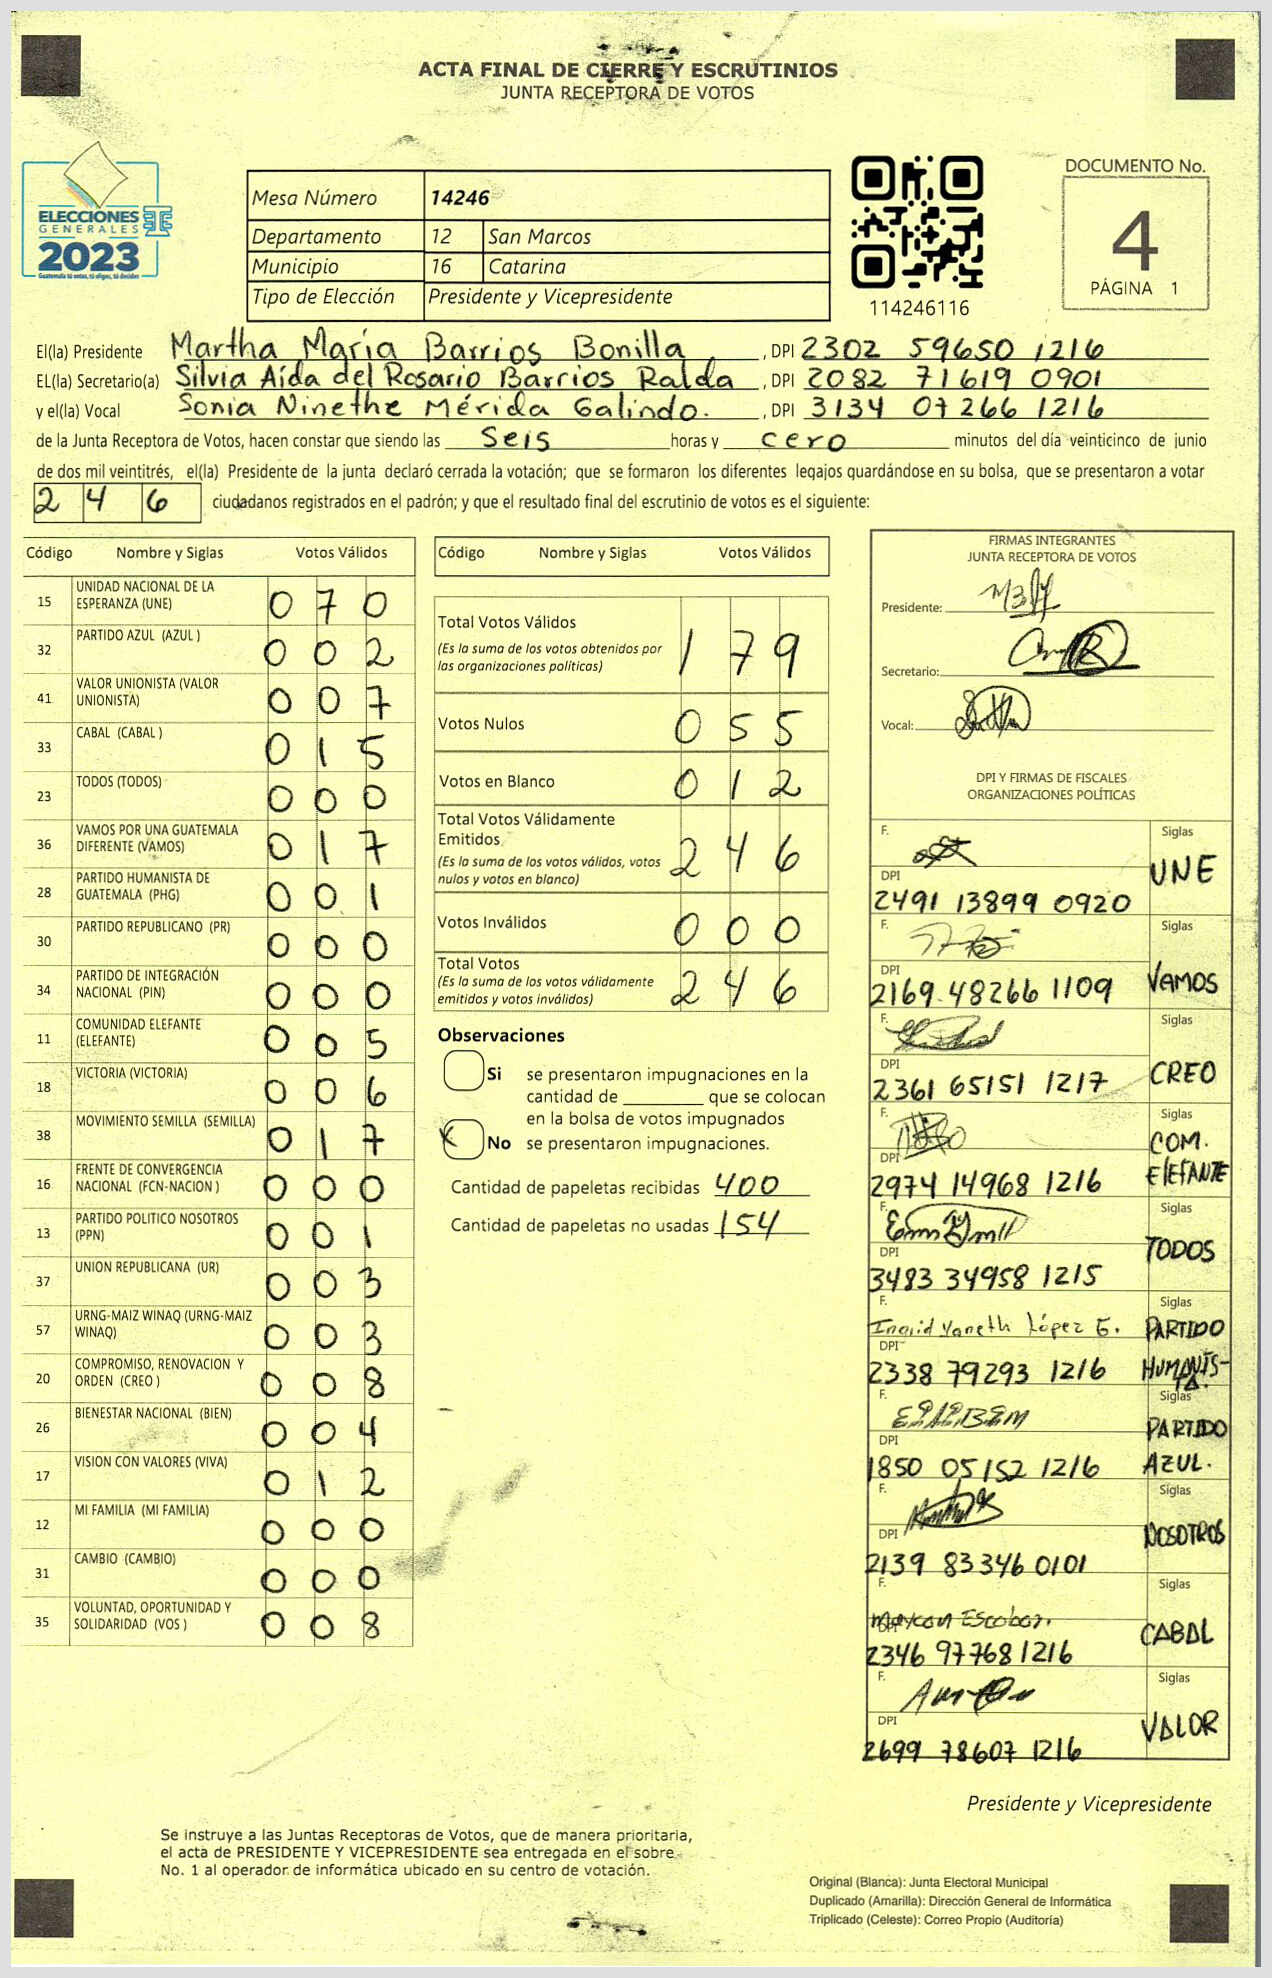 ACTA FINAL DE CIERRE Y ESCRUTINIOS
JUNTA RECEPTORA DE VOTOS
ELECCIONES
GENERALES
2023
Guatemala tú votas, tú eliges, tú decides
Mesa Número 14246
Departamento 12 San Marcos
Municipio 16 Catarina
Tipo de Elección Presidente y Vicepresidente
114246116
DOCUMENTO No.
4
PÁGINA 1
El(la) Presidente Martha María Barrios Bonilla, DPI 2302 59650 1216
EL(la) Secretario(a) Silvia Aída del Rosario Barrios Ralda, DPI 2082 71619 0901
y el(la) Vocal Sonia Ninethe Mérida Galindo., DPI 3134 07266 1216
de la Junta Receptora de Votos, hacen constar que siendo las Seis horas y cero minutos del día veinticinco de junio
de dos mil veintitrés, el(la) Presidente de la junta declaró cerrada la votación; que se formaron los diferentes legajos quardándose en su bolsa, que se presentaron a votar
246 ciudadanos registrados en el padrón; y que el resultado final del escrutinio de votos es el siguiente:
Código Nombre y Siglas Votos Válidos
15 UNIDAD NACIONAL DE LA ESPERANZA (UNE) 070
32 PARTIDO AZUL (AZUL ) 002
41 VALOR UNIONISTA (VALOR UNIONISTA) 007
33 CABAL (CABAL ) 015
23 TODOS (TODOS) 000
36 VAMOS POR UNA GUATEMALA DIFERENTE (VAMOS) 017
28 PARTIDO HUMANISTA DE GUATEMALA (PHG) 001
30 PARTIDO REPUBLICANO (PR) 000
34 PARTIDO DE INTEGRACIÓN NACIONAL (PIN) 000
11 COMUNIDAD ELEFANTE (ELEFANTE) 005
18 VICTORIA (VICTORIA) 006
38 MOVIMIENTO SEMILLA (SEMILLA) 017
16 FRENTE DE CONVERGENCIA NACIONAL (FCN-NACION ) 000
13 PARTIDO POLITICO NOSOTROS (PPN) 001
37 UNION REPUBLICANA (UR) 003
57 URNG-MAIZ WINAQ (URNG-MAIZ WINAQ) 003
20 COMPROMISO, RENOVACION Y ORDEN (CREO ) 008
26 BIENESTAR NACIONAL (BIEN) 004
17 VISION CON VALORES (VIVA) 012
12 MI FAMILIA (MI FAMILIA) 000
31 CAMBIO (CAMBIO) 000
35 VOLUNTAD, OPORTUNIDAD Y SOLIDARIDAD (VOS ) 008
Código Nombre y Siglas Votos Válidos
Total Votos Válidos 179
(Es la suma de los votos obtenidos por
las organizaciones políticas)
Votos Nulos 055
Votos en Blanco 012
Total Votos Válidamente
Emitidos 246
(Es la suma de los votos válidos, votos
nulos y votos en blanco)
Votos Inválidos 000
Total Votos 246
(Es la suma de los votos válidamente
emitidos y votos inválidos)
Observaciones
Si se presentaron impugnaciones en la
cantidad de ________ que se colocan
en la bolsa de votos impugnados
X No se presentaron impugnaciones.
Cantidad de papeletas recibidas 400
Cantidad de papeletas no usadas 154
FIRMAS INTEGRANTES
JUNTA RECEPTORA DE VOTOS
Presidente:
Secretario:
Vocal:
DPI Y FIRMAS DE FISCALES
ORGANIZACIONES POLÍTICAS
F. Siglas
UNE
DPI
2491 13899 0920
F. Siglas
VAMOS
DPI
2169 48266 1109
F. Siglas
CREO
DPI
2361 65151 1217
F. Siglas
COM.
ElEFANTE
DPI
2974 14968 1216
F. Siglas
TODOS
DPI
3483 34958 1215
F. Siglas
Ingrid Yaneth López E. PARTIDO
HUMANIS-
TA.
DPI
2338 79293 1216
F. Siglas
PARTIDO
AZUL.
DPI
1850 05152 1216
F. Siglas
NOSOTROS
DPI
2139 83346 0101
F. Siglas
Maycon Escobar. CABAL
DPI
2346 97768 1216
F. Siglas
VALOR
DPI
2699 78607 1216
Presidente y Vicepresidente
Se instruye a las Juntas Receptoras de Votos, que de manera prioritaria,
el acta de PRESIDENTE Y VICEPRESIDENTE sea entregada en el sobre
No. 1 al operador de informática ubicado en su centro de votación.
Original (Blanca): Junta Electoral Municipal
Duplicado (Amarilla): Dirección General de Informática
Triplicado (Celeste): Correo Propio (Auditoría)